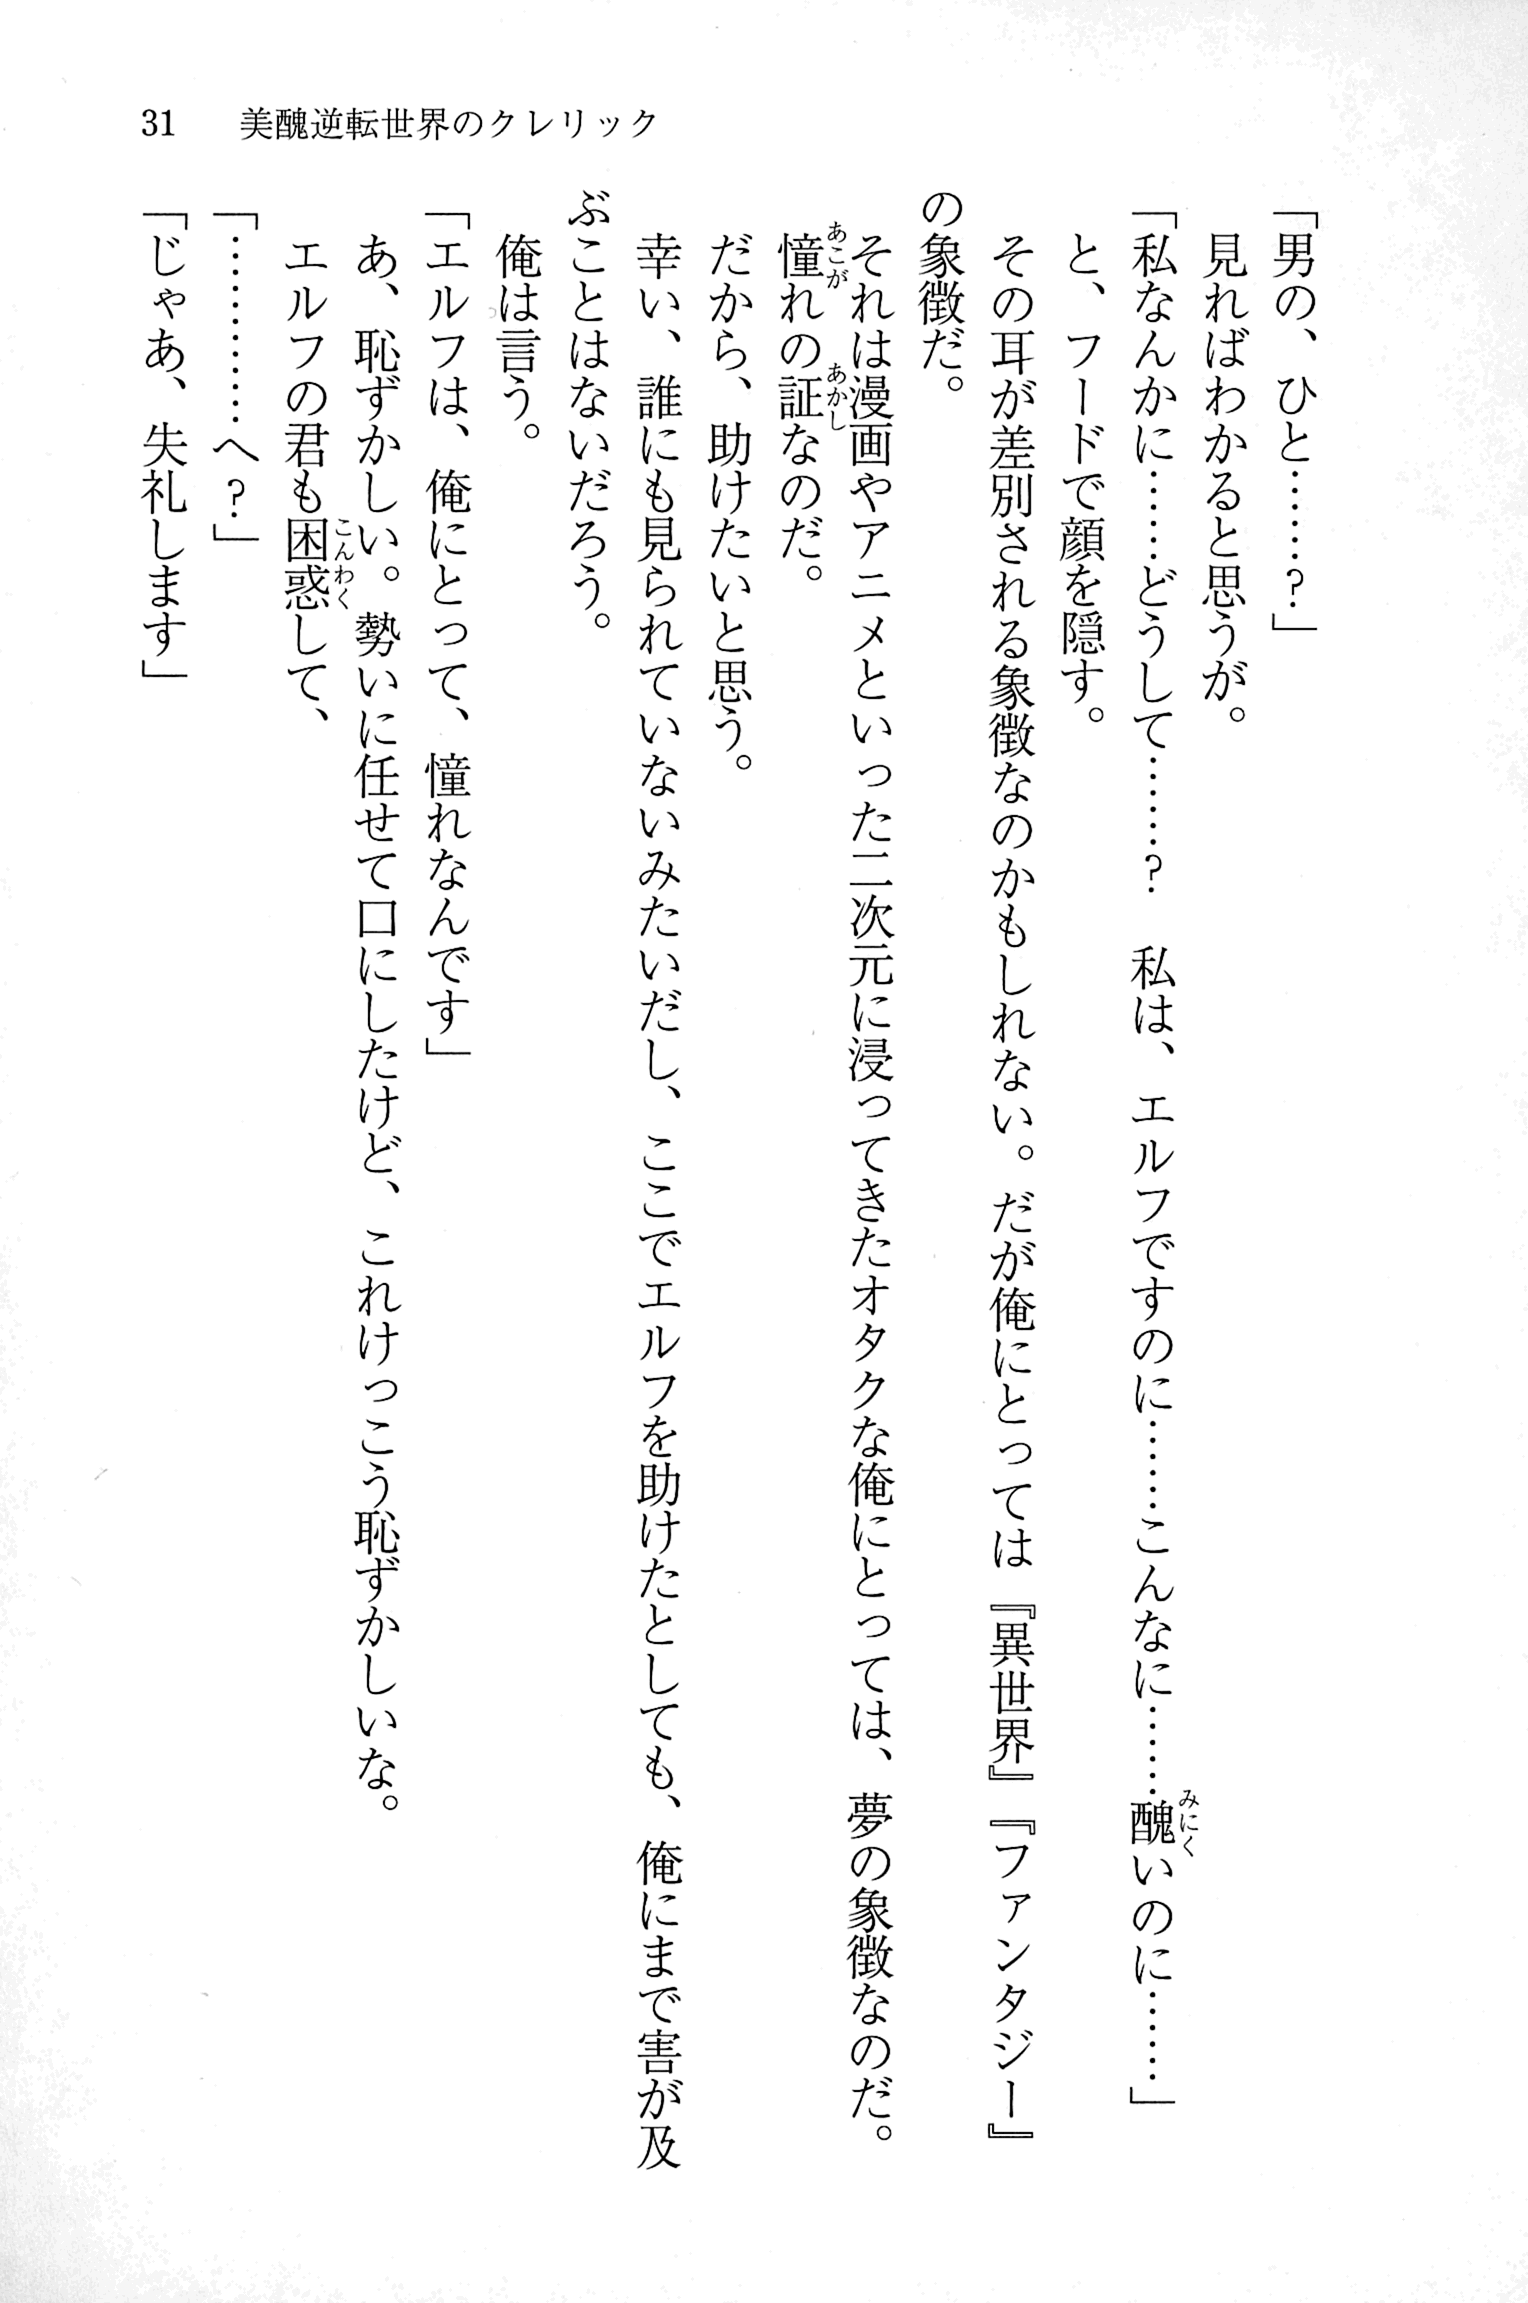 31　美醜逆転世界のクレリック
「男の、ひと………?」
見ればわかると思うが。
「私なんかに……どうして………?　私は、エルフですのに………こんなに………醜いのに………」
と、フードで顔を隠す。
その耳が差別される象徴なのかもしれない。だが俺にとっては『異世界』『ファンタジー』
の象徴だ。
それは漫画やアニメといった二次元に浸ってきたオタクな俺にとっては、夢の象徴なのだ。
憧れの証なのだ。
だから、助けたいと思う。
幸い、誰にも見られていないみたいだし、ここでエルフを助けたとしても、俺にまで害が及
ぶことはないだろう。
俺は言う。
「エルフは、俺にとって、憧れなんです」
あ、恥ずかしい。勢いに任せて口にしたけど、これけっこう恥ずかしいな。
エルフの君も困惑して、
「…………へ?」
「じゃあ、失礼します」